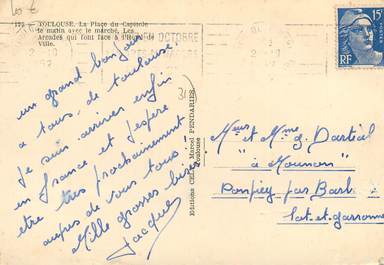 172 - TOULOUSE. La Place du Capitole
le matin avec le marché. Les
Arcades qui font face à l'Hôtel de
Ville.
OCTOBRE
15F
RF
un grand bonjour
à tous, de toulouse.
Je suis arrivée enfin
en France et j'espère
etre très prochainement
auprès de vous tous.
Mille grosses bises
Jacques
Editions CELY, Marcel PENDARIES
Toulouse
et Mme g.
"à Mounon"
Pompiey par Barb
Lot-et-garonne